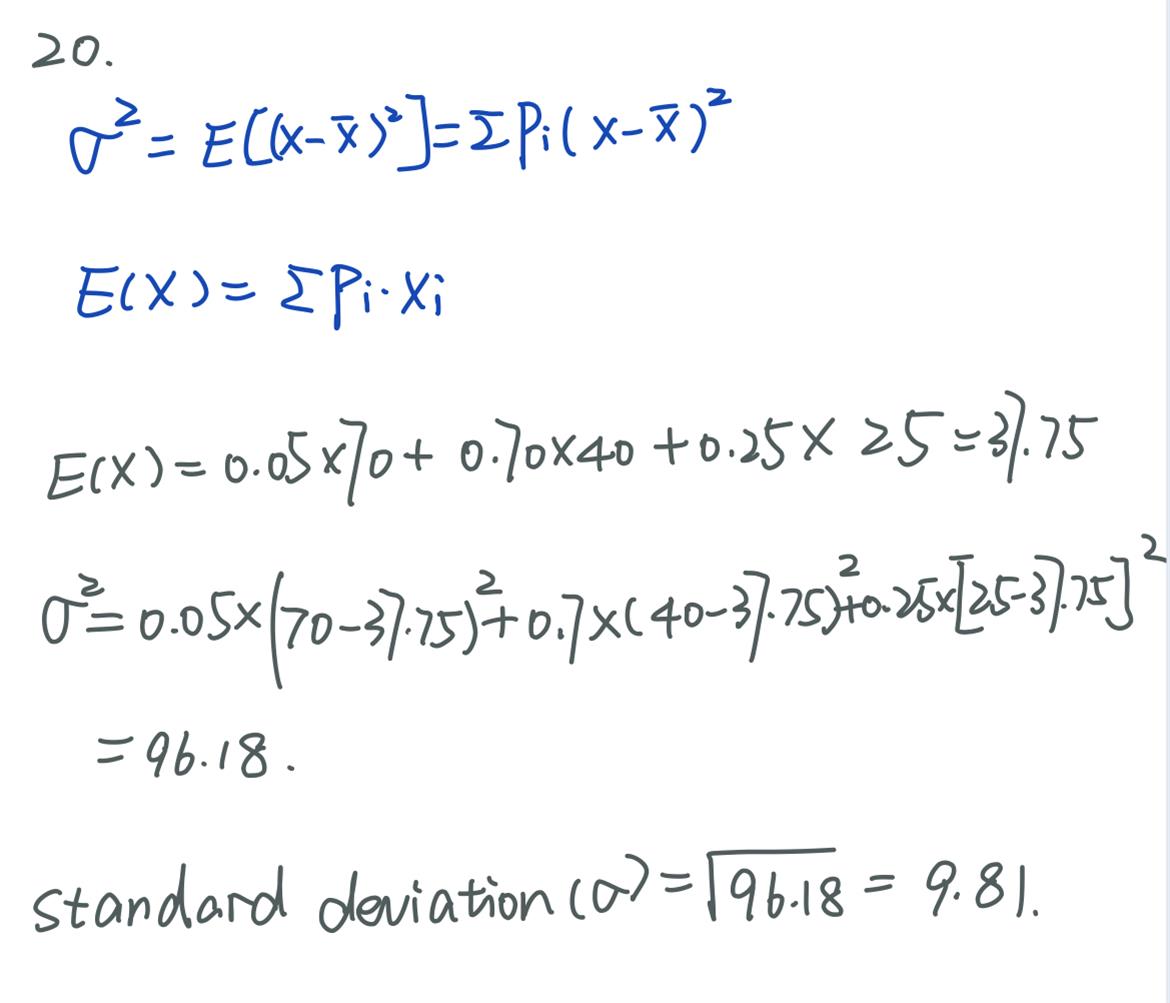 20.
σ² = E[(x-x̄)²] = Σ Pi ( x-x̄ )²
E(X) = Σ Pi · Xi
E(X) = 0.05×70 + 0.70×40 + 0.25 × 25 = 37.75
σ² = 0.05×(70-37.75)² + 0.7×(40-37.75)² + 0.25×[25-37.75]²
= 96.18 .
standard deviation (σ) = √96.18 = 9.81.